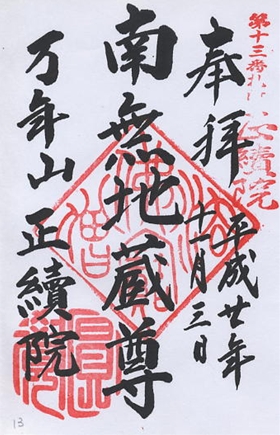 第十三番
正續院
奉拝
平成廿年
十一月三日
南無地蔵尊
万年山正續院
13